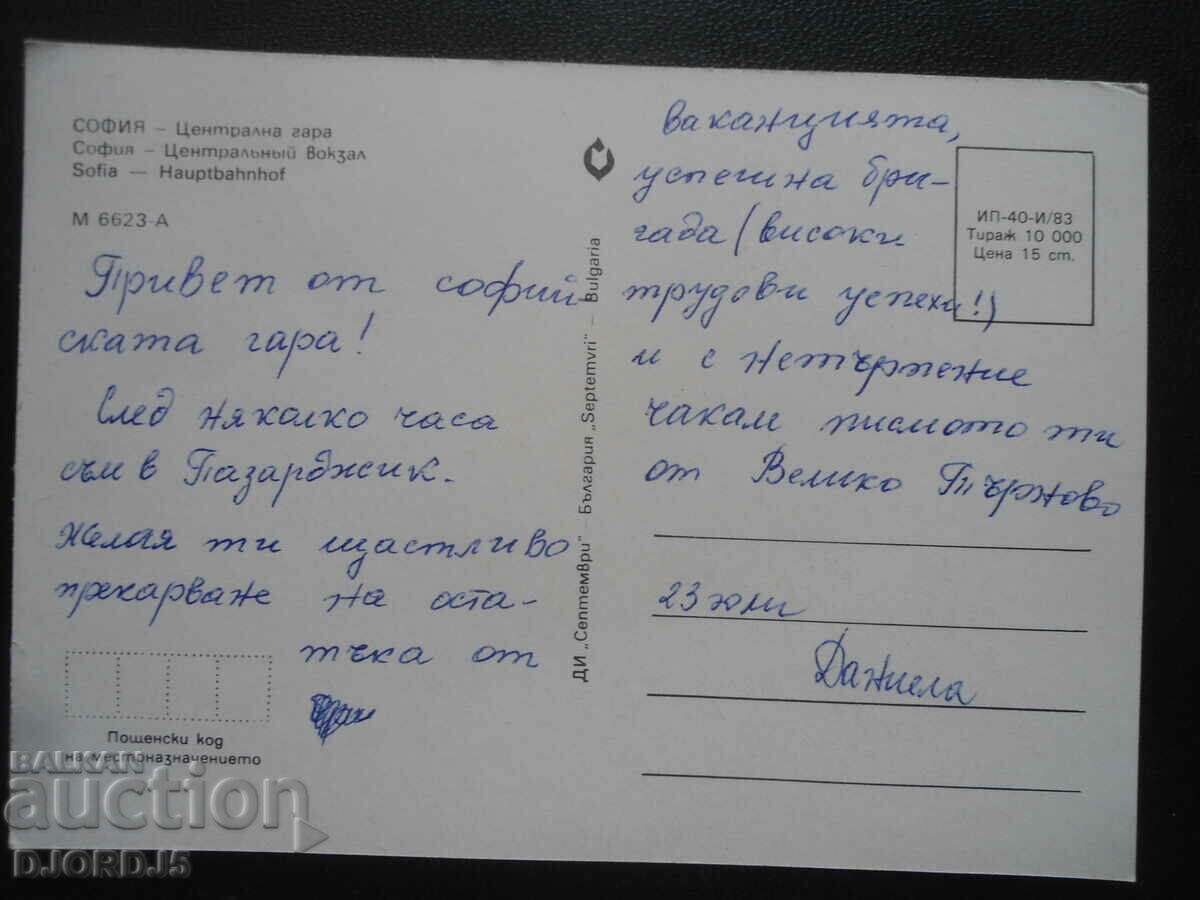 СОФИЯ – Централна гара
София – Центральный вокзал
Sofia — Hauptbahnhof
М 6623-А
Привет от софий-
ската гара!
След няколко часа
съм в Пазарджик.
Желая ти щастливо
прекарване на оста-
тъка от
Пощенски код
на местоназначението
ДИ „Септември" – България „Septemvri" – Bulgaria
ваканцията,
успешна бри-
гада (високи
трудови успехи!)
и с нетърпение
чакам писмото ти
от Велико Търново
23 юли
Даниела
ИП-40-И/83
Тираж 10 000
Цена 15 ст.
BALKAN
auction
DJORDJ5